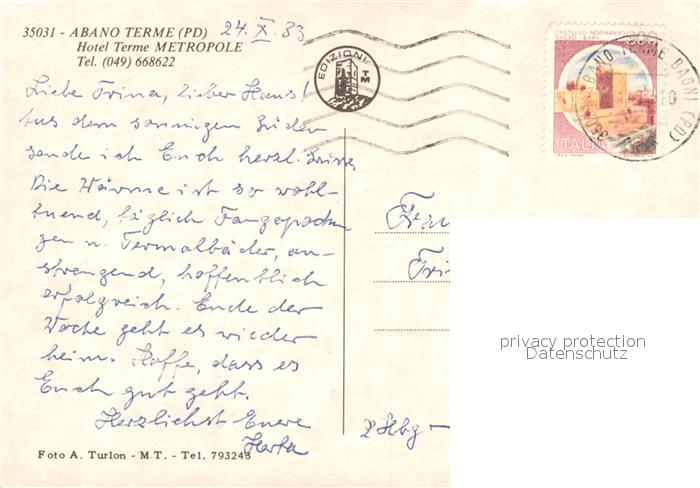 35031 - ABANO TERME (PD) 24. X. 83
Hotel Terme METROPOLE
Tel. (049) 668622
EDIZIONI
TM
CASTELLO NORMANNO
SVEVO - BARI
ITALIA
ABANO TERME BAGNI (PD)
Liebe Trina, lieber Hans!
Aus dem sonnigen Süden
sende ich Euch herzl. Grüsse.
Die Wärme ist so wohl-
tuend, täglich Fangopackun
gen u. Termalbäder, an-
strengend, hoffentlich
erfolgreich. Ende der
Woche geht es wieder
heim. Hoffe, dass es
Euch gut geht.
Herzlichst Euere
Herta
Foto A. Turlon - M.T. - Tel. 793243
Frau
Tri
privacy protection
Datenschutz